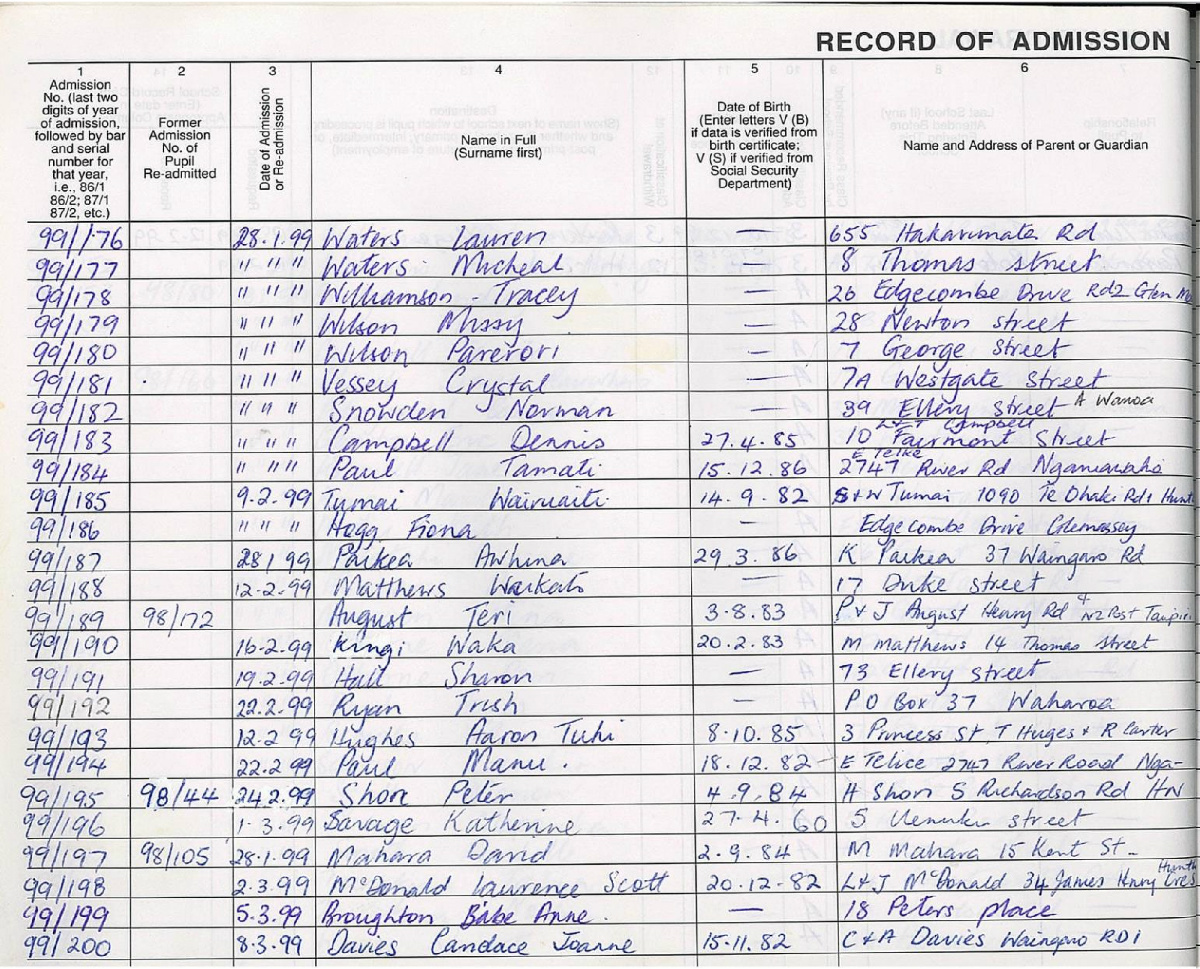 RECORD OF ADMISSION
1 2 3 4 5 6
Admission No. (last two digits of year of admission, followed by bar and serial number for that year, i.e., 86/1 86/2; 87/1 87/2, etc.)
Former Admission No. of Pupil Re-admitted
Date of Admission or Re-admission
Name in Full (Surname first)
Date of Birth (Enter letters V (B) if data is verified from birth certificate; V (S) if verified from Social Security Department)
Name and Address of Parent or Guardian
99/176 28.1.99 Waters Lauren — 655 Hakarimata Rd
99/177 " " " Waters Micheal — 8 Thomas Street
99/178 " " " Williamson Tracey — 26 Edgecombe Drive Rd2 Glen
99/179 " " " Wilson Missy — 28 Newton Street
99/180 " " " Wilson Parerori — 7 George Street
99/181 " " " Vessey Crystal — 7A Westgate Street
99/182 " " " Snowden Norman — 39 Ellery Street A Wanoa
L & T Campbell
99/183 " " " Campbell Dennis 27.4.85 10 Fairmont Street
99/184 " " " Paul Tamati 15.12.86 2747 River Rd Ngaruawahia
99/185 9.2.99 Tumai Wairuaiti 14.9.82 S+W Tumai 1090 Te Ohaki Rd1
99/186 " " " Hogg Fiona — Edgecombe Drive Glenmassey
99/187 28 1 99 Paekea Awhina 29.3.86 K Paekea 37 Waingaro Rd
99/188 12-2.99 Matthews Waikato — 17 Duke Street
99/189 98/172 August Teri 3.8.83 P & J August Henry Rd + NZ Post Taupiri
99/190 16-2.99 Kingi Waka 20.2.83 M Matthews 14 Thomas Street
99/191 19.2.99 Hall Sharon — 73 Ellery Street
99/192 22.2.99 Ryan Trish — P O Box 37 Waharoa
99/193 12-2 99 Hughes Aaron Tuhi 8.10.85 3 Princess St, T Huges + R Carter
99/194 22.2 99 Paul Manu. 18.12.82 E 2747 River Road Nga-
99/195 98/44 24.2.99 Shore Peter 4.9.84 H Shore S Richardson Rd HN
99/196 1-3.99 Savage Katherine 27.4.60 5 Uenuku Street
99/197 98/105 28.1.99 Mahara David 2.9.84 M Mahara 15 Kent St-
99/198 2.3.99 McDonald Laurence Scott 20.12-82 L+J McDonald 34 James Henry Cres
99/199 5.3.99 Broughton Babe Anne. — 18 Peters place
99/200 8.3.99 Davies Candace Joanne 15.11.82 C & A Davies Waingaro RD1